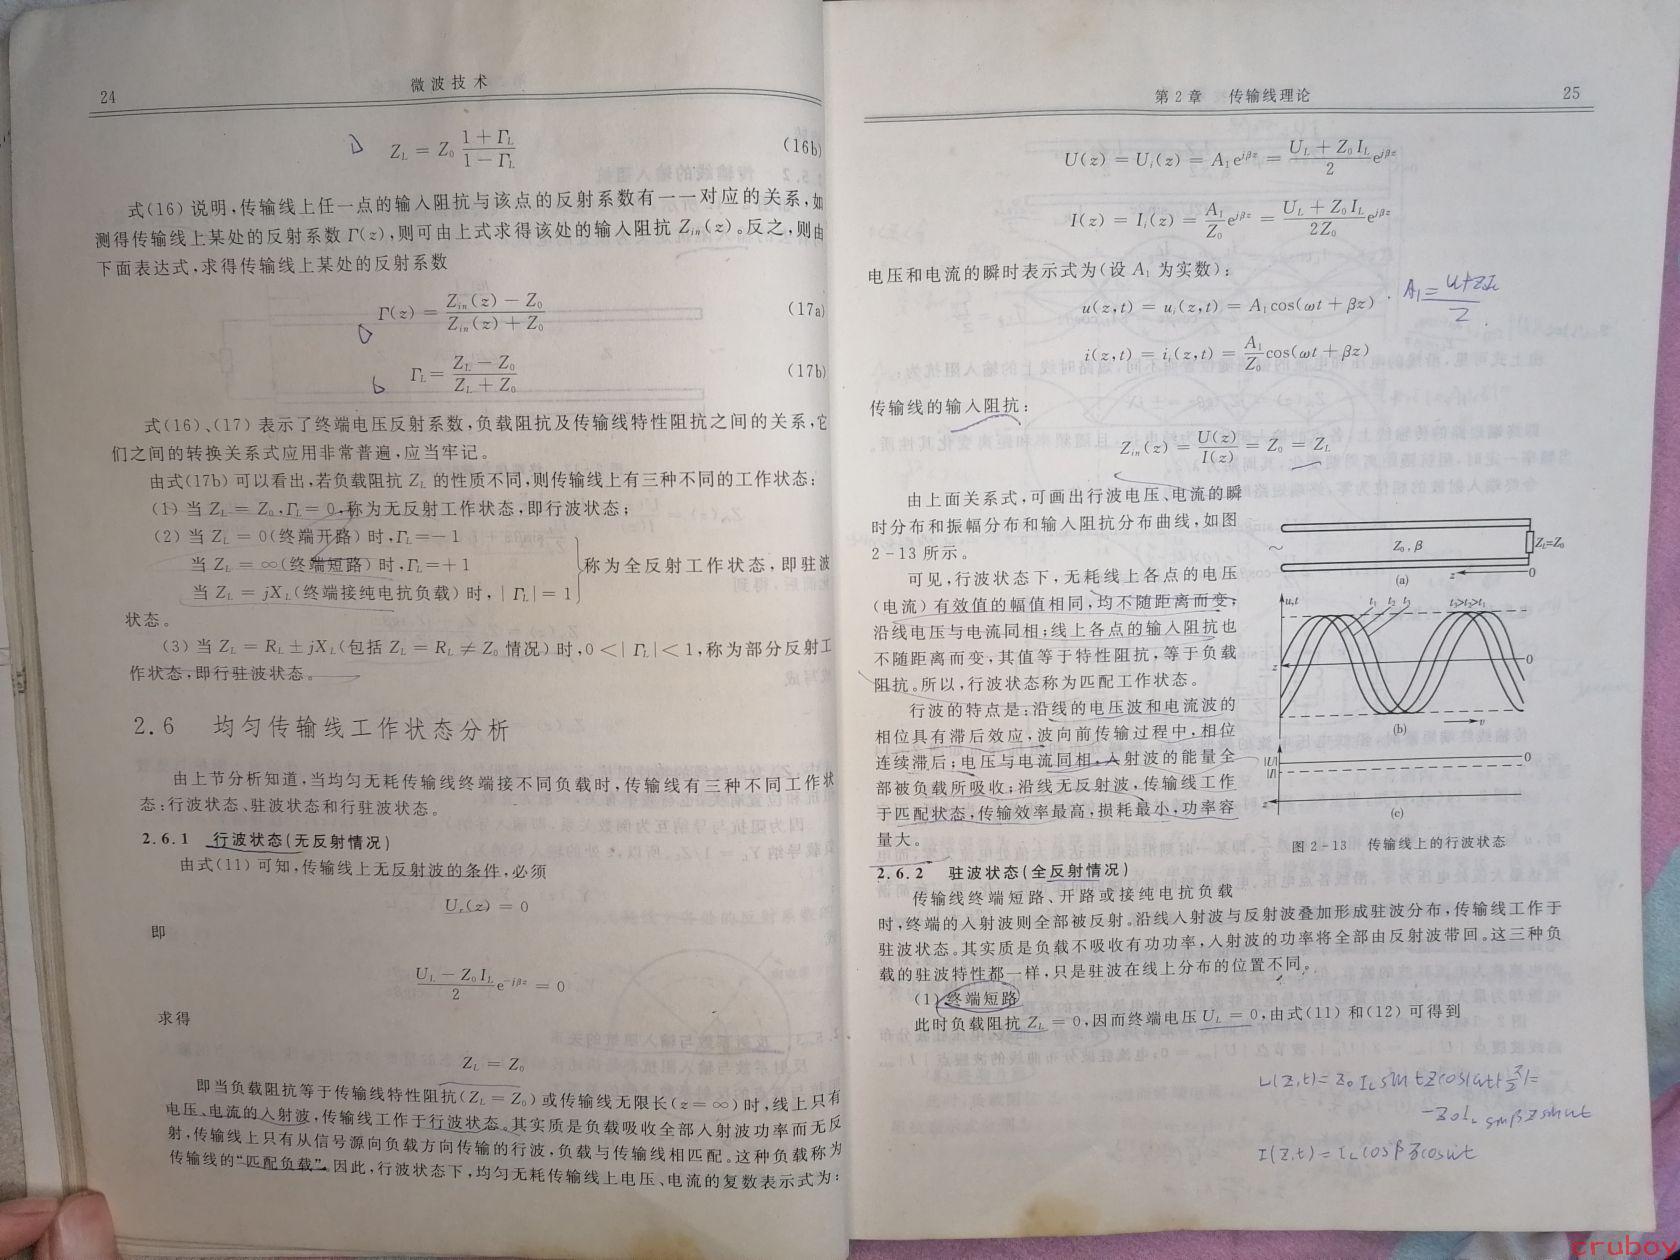 24
微波技术
Z_L = Z_0 (1+Γ_L)/(1−Γ_L) (16b)
式(16)说明,传输线上任一点的输入阻抗与该点的反射系数有一一对应的关系,如
测得传输线上某处的反射系数 Γ(z),则可由上式求得该处的输入阻抗 Z_in(z)。反之,则由
下面表达式,求得传输线上某处的反射系数
Γ(z) = (Z_in(z) − Z_0)/(Z_in(z) + Z_0) (17a)
Γ_L = (Z_L − Z_0)/(Z_L + Z_0) (17b)
式(16)、(17)表示了终端电压反射系数,负载阻抗及传输线特性阻抗之间的关系,它
们之间的转换关系式应用非常普遍,应当牢记。
由式(17b)可以看出,若负载阻抗 Z_L 的性质不同,则传输线上有三种不同的工作状态:
(1) 当 Z_L = Z_0,Γ_L = 0,称为无反射工作状态,即行波状态;
(2) 当 Z_L = 0(终端开路)时,Γ_L = −1
当 Z_L = ∞(终端短路)时,Γ_L = +1
当 Z_L = jX_L(终端接纯电抗负载)时,|Γ_L| = 1
称为全反射工作状态,即驻波
状态。
(3) 当 Z_L = R_L ± jX_L(包括 Z_L = R_L ≠ Z_0 情况)时,0<|Γ_L|<1,称为部分反射工
作状态,即行驻波状态。
2.6 均匀传输线工作状态分析
由上节分析知道,当均匀无耗传输线终端接不同负载时,传输线有三种不同工作状
态:行波状态、驻波状态和行驻波状态。
2.6.1 行波状态(无反射情况)
由式(11)可知,传输线上无反射波的条件,必须
U_r(z) = 0
即
(U_L − Z_0 I_L)/2 e^{−jβz} = 0
求得
Z_L = Z_0
即当负载阻抗等于传输线特性阻抗(Z_L = Z_0)或传输线无限长(z = ∞)时,线上只有
电压、电流的入射波,传输线工作于行波状态。其实质是负载吸收全部入射波功率而无反
射,传输线上只有从信号源向负载方向传输的行波,负载与传输线相匹配。这种负载称为
传输线的“匹配负载”。因此,行波状态下,均匀无耗传输线上电压、电流的复数表示式为:
第2章 传输线理论
25
U(z) = U_i(z) = A_1 e^{jβz} = (U_L + Z_0 I_L)/2 e^{jβz}
I(z) = I_i(z) = A_1/Z_0 e^{jβz} = (U_L + Z_0 I_L)/(2Z_0) e^{jβz}
电压和电流的瞬时表示式为(设 A_1 为实数):
u(z,t) = u_i(z,t) = A_1 cos(ωt + βz)
i(z,t) = i_i(z,t) = A_1/Z_0 cos(ωt + βz)
传输线的输入阻抗:
Z_in(z) = U(z)/I(z) = Z_0 = Z_L
由上面关系式,可画出行波电压、电流的瞬
时分布和振幅分布和输入阻抗分布曲线,如图
2-13 所示。
可见,行波状态下,无耗线上各点的电压
(电流)有效值的幅值相同,均不随距离而变;
沿线电压与电流同相;线上各点的输入阻抗也
不随距离而变,其值等于特性阻抗,等于负载
阻抗。所以,行波状态称为匹配工作状态。
行波的特点是:沿线的电压波和电流波的
相位具有滞后效应,波向前传输过程中,相位
连续滞后;电压与电流同相,入射波的能量全
部被负载所吸收;沿线无反射波,传输线工作
于匹配状态,传输效率最高,损耗最小,功率容
量大。
~ Z_0,β Z_L=Z_0
z 0
(a)
u,t t_1 t_2 t_3 t_3>t_2>t_1
z 0
(b) v
|U| |I| 0
z
(c)
图 2-13 传输线上的行波状态
2.6.2 驻波状态(全反射情况)
传输线终端短路、开路或接纯电抗负载
时,终端的入射波则全部被反射。沿线入射波与反射波叠加形成驻波分布,传输线工作于
驻波状态。其实质是负载不吸收有功功率,入射波的功率将全部由反射波带回。这三种负
载的驻波特性都一样,只是驻波在线上分布的位置不同。
(1) 终端短路
此时负载阻抗 Z_L = 0,因而终端电压 U_L = 0,由式(11)和(12)可得到
I(z,t) = I_L cosβz cosωt
cruboy